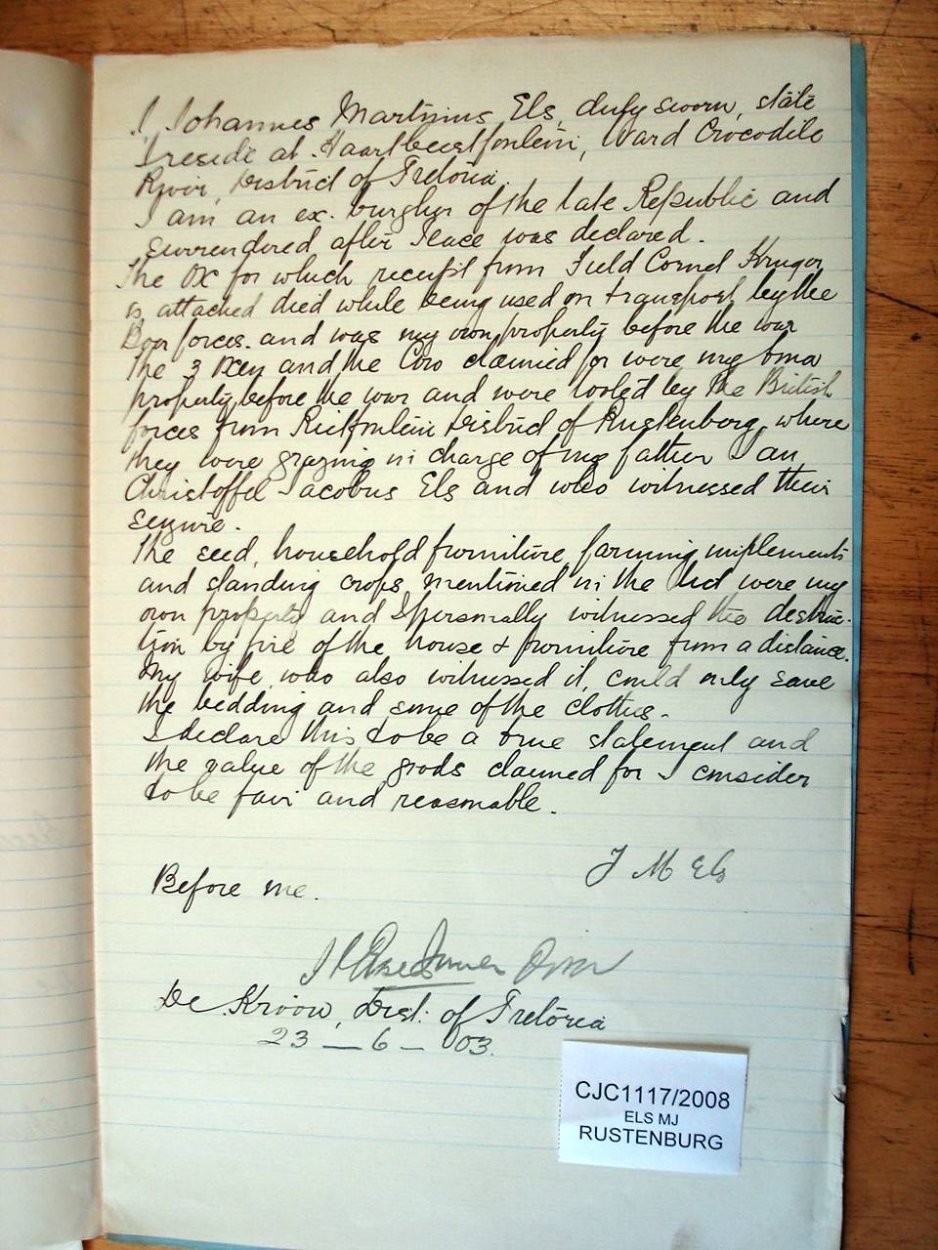 I Johannes Martinus Els, duly sworn, state
I reside at Haartbeestfontein, Ward Crocodile
River, District of Pretoria.
I am an ex. burgher of the late Republic and
surrendered after Peace was declared.
The ox for which receipt from Field Cornet Kruger
is attached died while being used on transport by the
Boer forces. and was my own property before the war
The 3 Oxen and the Cow claimed for were my bona
property before the war and were looted by the British
forces from Rietfontein District of Rustenburg, where
they were grazing in charge of my father Jan
Christoffel Jacobus Els and who witnessed their
seizure.
The seed, household furniture, farming implements
and standing crops mentioned in the list were my
own property and I personally witnessed the destruc-
tion by fire of the house & furniture from a distance.
My wife, who also witnessed it, could only save
the bedding and some of the clothes.
I declare this to be a true statement and
the value of the goods claimed for I consider
to be fair and reasonable.
J M Els
Before me.
De Kroon, Dist: of Pretoria
23 — 6 — 03.
CJC1117/2008
ELS MJ
RUSTENBURG